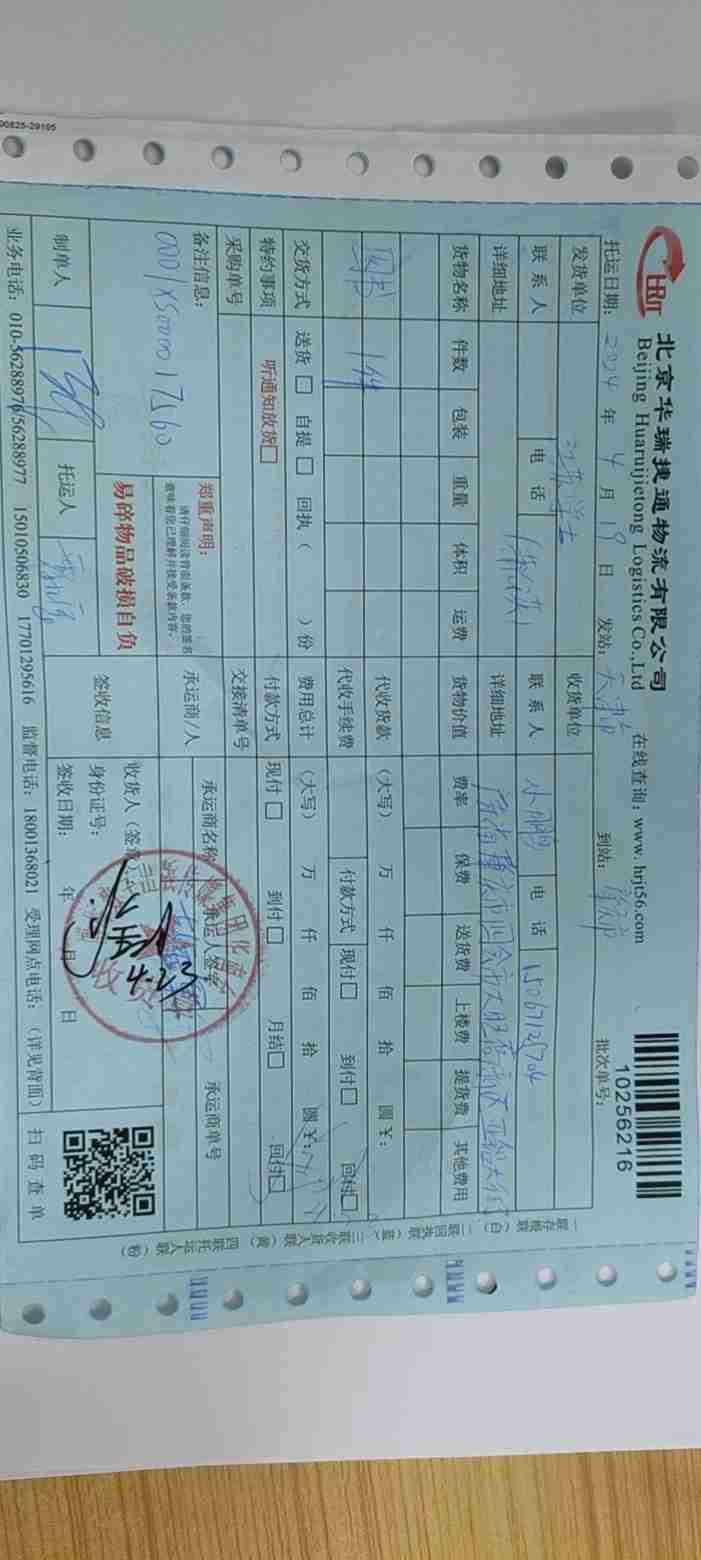 00825-29105
HRJT
北京华瑞捷通物流有限公司
Beijing Huaruijietong Logistics Co.,Ltd
在线查询：www. hrjt56.com
批次单号：
10256216
托运日期： 2024 年 4 月 19 日 发站： 天津 到站：
发货单位 收货单位
联系人 电话 联系人 小鹏 电话 15067128704
详细地址 详细地址
货物名称 件数 包装 重量 体积 运费 货物价值 费率 保费 送货费 上楼费 提货费 其他费用
图书 1件
代收货款 （大写） 万 仟 佰 拾 圆 ¥：
代收手续费 付款方式 现付□ 到付□ 回付□
交货方式 送货□ 自提□ 回执（ ）份 费用总计 （大写） 万 仟 佰 拾 圆 ¥：
特约事项 听通知放货□ 付款方式 现付□ 到付□ 月结□ 回付□
采购单号 交接清单号
备注信息： 0001XS000017560
郑重声明：
请仔细阅读背面条款，您的签名
意味着您已理解并接受条款内容。
承运商/人 承运商名称 承运人签字 承运商单号
易碎物品破损自负
签收信息 收货人（签章）
身份证号：
签收日期： 年 月 日
4-23
制单人 托运人
扫码查单
业务电话：010-56288976/56288977 15010506830 17701295616 监督电话：18001368021 受理网点电话：（详见背面）
一联存根联（白） 二联回执联（蓝） 三联收货人联（黄） 四联托运人联（粉）